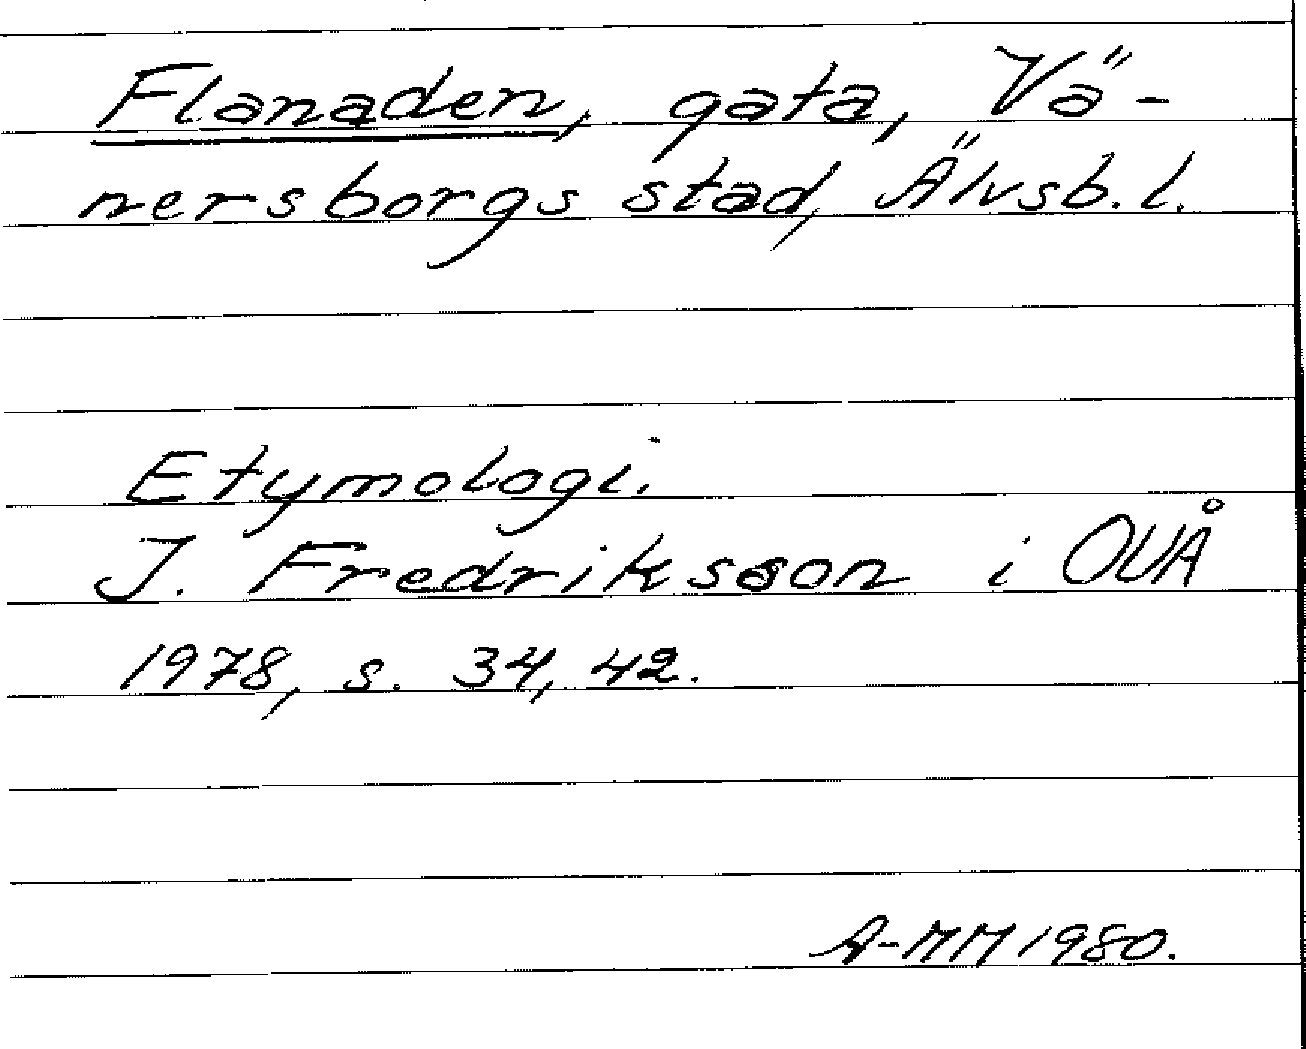 Flanaden, gata, Vä-
nersborgs stad, Älvsb. l.
Etymologi.
J. Fredriksson i OUÅ
1978, s. 34, 42.
A-MM 1980.